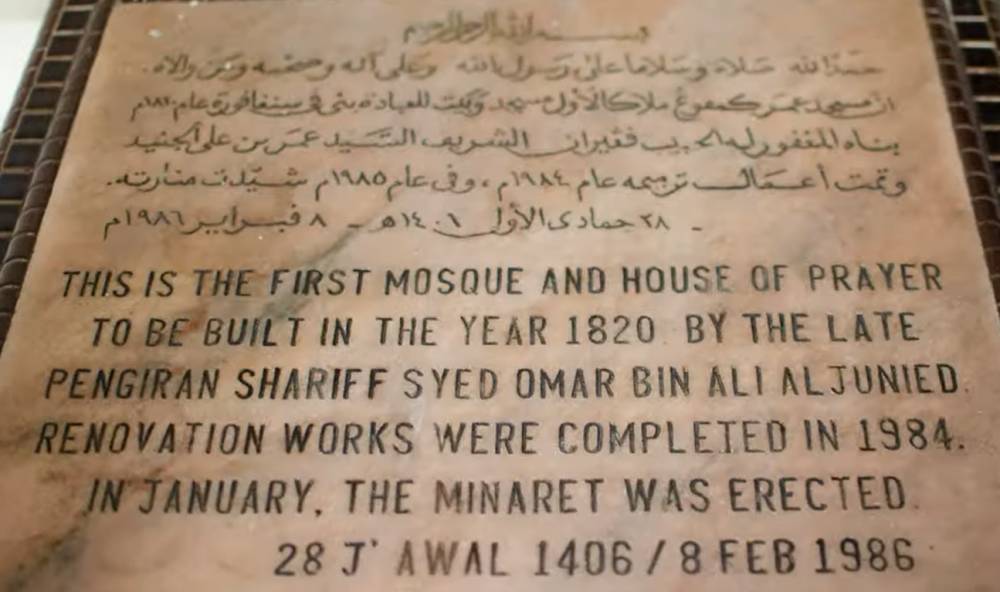 بسم الله الرحمن الرحيم
حمدا لله صلاة وسلاما على رسول الله وعلى آله وصحبه ومن والاه.
ان مسجد عمر كمفوغ ملاكا لأول مسجد وبيت للعبادة بنى في سنغافورة عام ١٨٢٠م
بناه المغفور له الحبيب فغيران الشريف السيد عمر بن علي الجنيد
وتمت أعمال ترميمه عام ١٩٨٤م، وفى عام ١٩٨٥م شيّدت منارته.
- ٢٨ جمادى الأول ١٤٠٦هـ - ٨ فبراير ١٩٨٦م
THIS IS THE FIRST MOSQUE AND HOUSE OF PRAYER
TO BE BUILT IN THE YEAR 1820 BY THE LATE
PENGIRAN SHARIFF SYED OMAR BIN ALI ALJUNIED.
RENOVATION WORKS WERE COMPLETED IN 1984.
IN JANUARY, THE MINARET WAS ERECTED.
28 J' AWAL 1406 / 8 FEB 1986